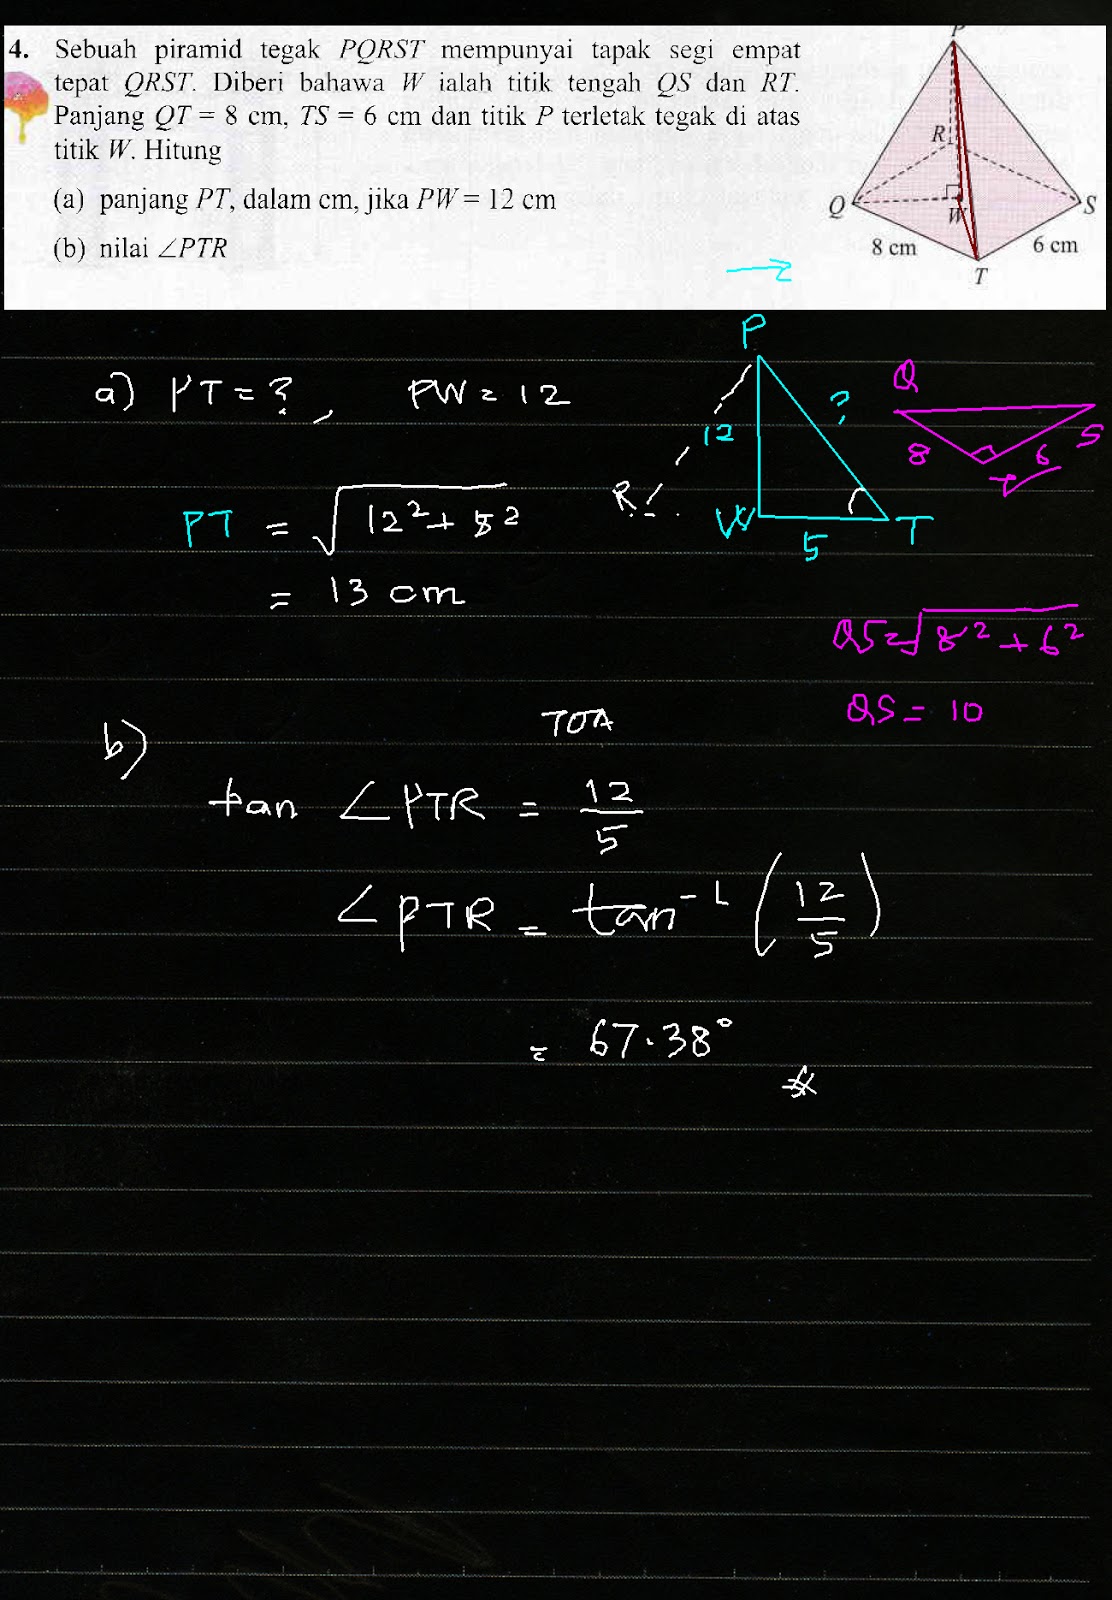 4. Sebuah piramid tegak PQRST mempunyai tapak segi empat
tepat QRST. Diberi bahawa W ialah titik tengah QS dan RT.
Panjang QT = 8 cm, TS = 6 cm dan titik P terletak tegak di atas
titik W. Hitung
(a) panjang PT, dalam cm, jika PW = 12 cm
(b) nilai ∠PTR
P
R
Q
W
S
8 cm
6 cm
T
a) PT = ?, PW = 12
P
12
?
R
W
5
T
Q
8
6
S
T
PT = √12² + 5²
= 13 cm
QS = √8² + 6²
QS = 10
b)
TOA
tan ∠PTR = 12/5
∠PTR = tan⁻¹ (12/5)
= 67.38°